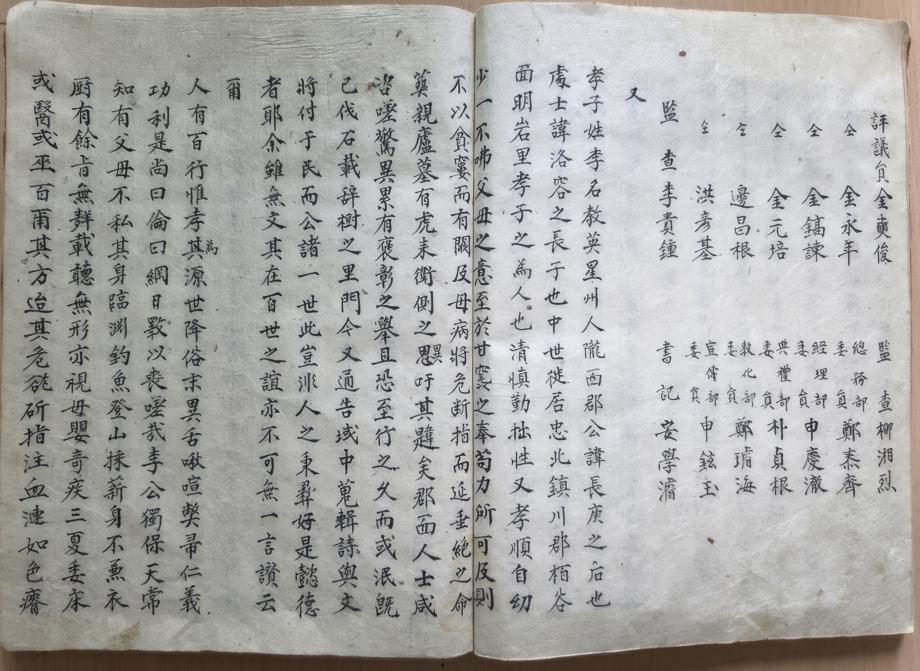 評議員金奭俊 監查柳湘烈
仝 金永年 總務部委員鄭泰齊
仝 金鎬諫 經理部委員申慶澈
仝 金元培 典禮部委員朴貞根
仝 邊昌根 敎化部委員鄭璿海
仝 洪彦基 宣傳部委員申鉉玉
監查李貴鍾 書記安學濬
又
孝子姓李名敎英星州人隴西郡公諱長庚之后也
處士諱洛容之長子也中世徙居忠北鎭川郡栢谷
面明岩里孝子之爲人也清愼勤拙性又孝順自幼
少一不咈父母之意至於甘旨之奉苟力所可及則
不以貧窶而有闕及母病將危断指而延垂絶之命
葬親廬墓有虎来衛側之異思吁其韙矣郡面人士咸
咨嗟驚異累有褒彰之擧且恐至行之久而或泯旣
已伐石載辞樹之里門今又通告域中蒐輯詩與文
將付于民而公諸一世此豈非人之秉彛好是懿德
者耶余雖無文其在百世之誼亦不可無一言讃云
爾
人有百行惟孝爲其源世降俗末異舌啾喧獘帚仁義
功利是尚曰倫曰綱日斁以喪嗟哉李公獨保天常
知有父母不私其身臨淵釣魚登山採薪身不兼衣
厨有餘肯無聲載聽無形亦視母嬰奇疾三夏委床
或醫或巫百爾其方迨其危欲斫指注血漣如色瘠